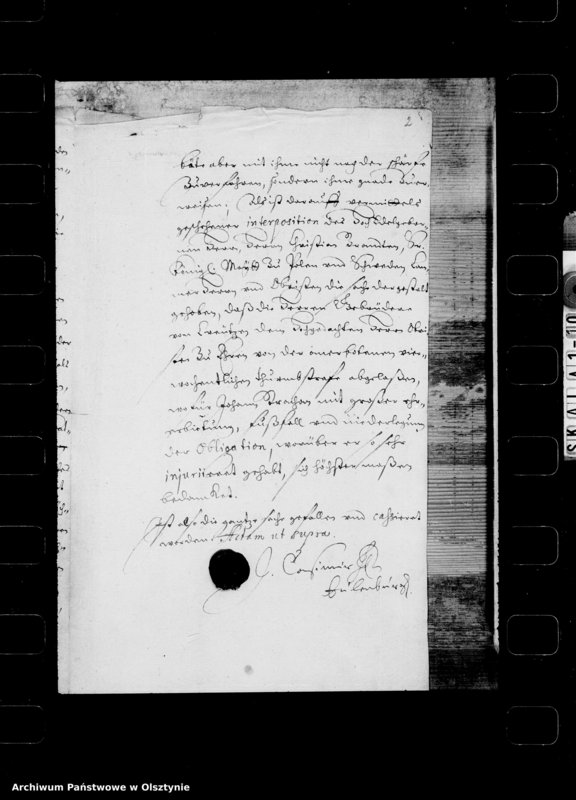 2
bäte aber mit ihme nicht nach der schärfe
zu verfahren, sondern ihme gnade zuer
weisen; Als ist darauff vermittels
geschehener interposition des Hochedelgebor-
nen Herrn, Herrn Christian Branten, Ihr.
Königl. Maytt. zu Polen und Schweden Cam
mer Herrn und Obristen die sache dergestalt
gehoben, daß die Herren Gebrüdere
von Creützen dem Hochgedachten Herrn Obri
sten zu Ehren von der zuerkobenen vier-
wochentlichen thurmbstrafe abgelaßen,
wofür Johann mit großer ehr-
erbietung, Fußfall und niederlegung
der Obligation, worüber er so sehr
injuriieret gehabt, sich höchster maßen
bedancket.
Ist also die gantze sache gefallen und cassieret
worden. Actum ut supra.
J. Casimir
Eulenburg
Archiwum Państwowe w Olsztynie
SKALA 1:10